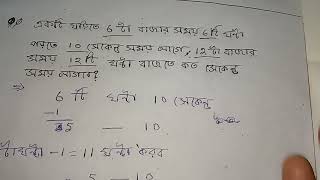 একটি ঘড়িতে 6 টা বাজার সময় 6 টি ঘন্টা
পড়তে 10 সেকেন্ড সময় লাগে, 12 টা বাজার
সময় 12 টি ঘন্টা বাজতে কত সেকেন্ড
সময় লাগবে?
⇒ 6 টি ঘন্টা 10 সেকেন্ড
-1
5 — 10
ঘন্টা -1 = 11 ঘন্টা
5 — 10